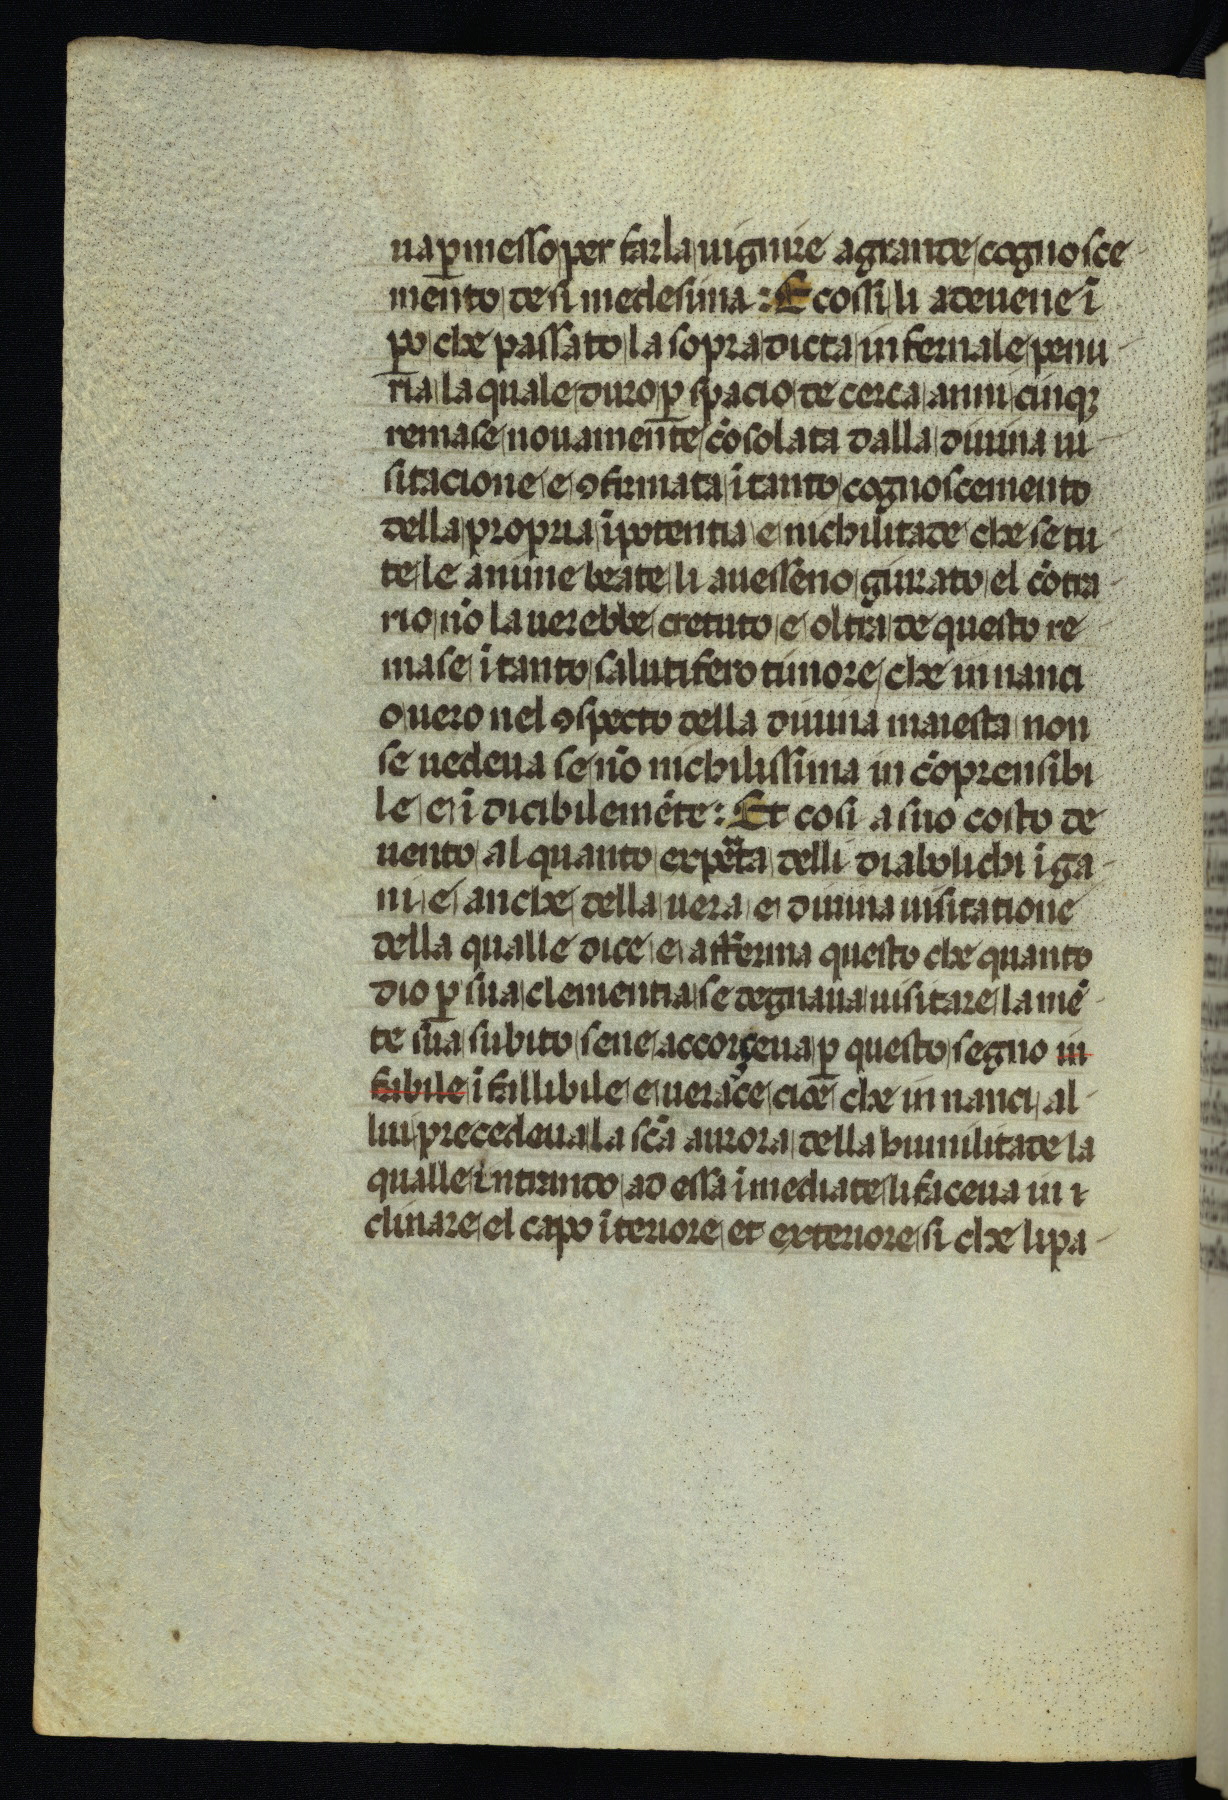 ua p̲messo per farla uignire a grande cognosce
mento de si medesima : E cossi li adeuene ī
p̲o che passato la sopra dicta infernale penu
ria la quale duro p̲ spacio de cerca anni cinqꝫ
remase nouamente cōsolata dalla diuina ui
sitacione e ꝯfirmata ī tanto cognoscemento
della propria īpotentia e nichilitade che se tu
te le anime beate li auesseno giurato el cōtra
rio nō la uerebbe creduto e oltra de questo re
mase ī tanto salutifero timore che in nanci
o uero nel ꝯspecto della diuina maiesta non
se uedeua se nō nichilissima in cōprensibi
le e ī dicibilemēte : Et cosi a suo costo de
uento al quanto experta delli diabolichi īga
ni e anche della uera e diuina uisitatione
della qualle dice e afferma questo che quanto
dio p̲ sua clementia se degnaua uisitare la mē
te sua subito se ne accorgeua p̲ questo segno in
fabile ī fallibile e uerace cioe che in nanci al
lui precedeua la scā aurora della humilitade la
qualle intrando ad essa īmediate li faceua in i
clinare el capo īteriore et exteriore si che li pa